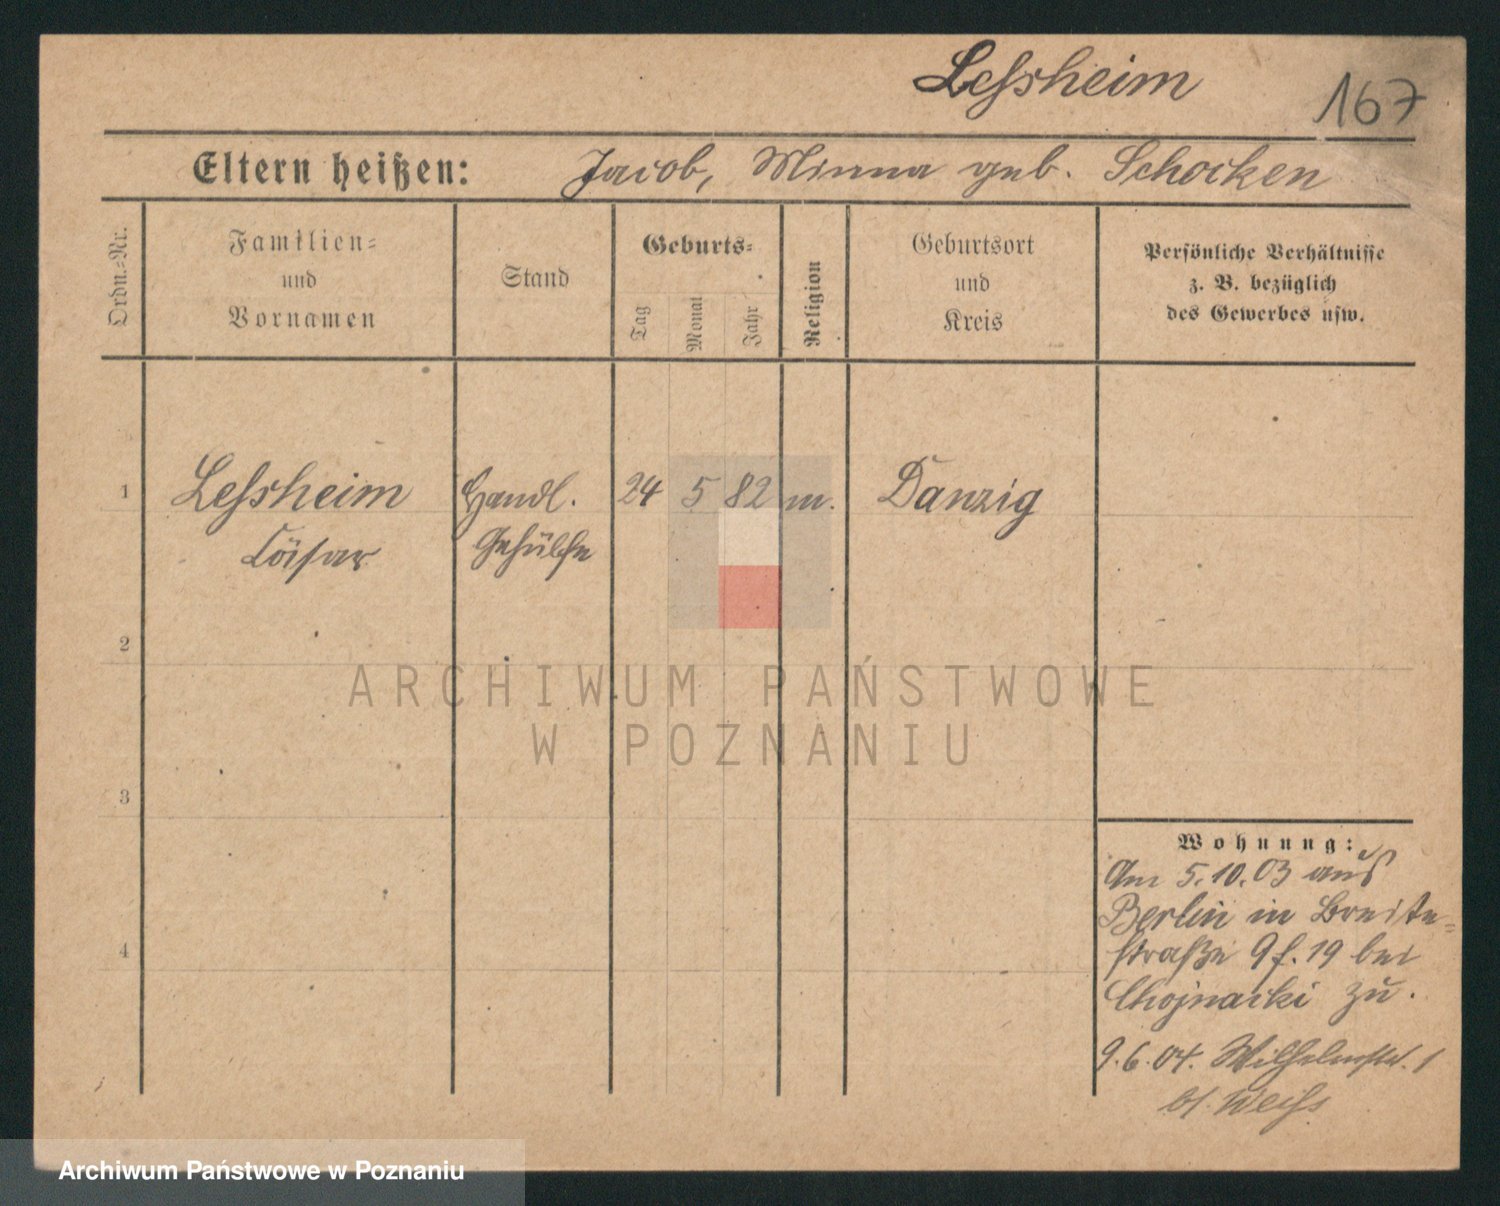 Leſsheim
167
Eltern heißen: Jacob, Minna geb. Schocken
Ordn.-Nr.
Familien-
und
Vornamen
Stand
Geburts-
Tag
Monat
Jahr
Religion
Geburtsort
und
Kreis
Persönliche Verhältnisse
z. B. bezüglich
des Gewerbes usw.
1 Leſsheim Handl. 24 5 82 m. Danzig
Cäsar Gehülfe
2
ARCHIWUM PAŃSTWOWE
W POZNANIU
3
Wohnung:
Am 5.10.03 aus
Berlin in Breite-
straße 9 f. 19 bei
Chojnacki zu.
4
9.6.04. Wilhelmstr. 1
b/. Weiſs
Archiwum Państwowe w Poznaniu